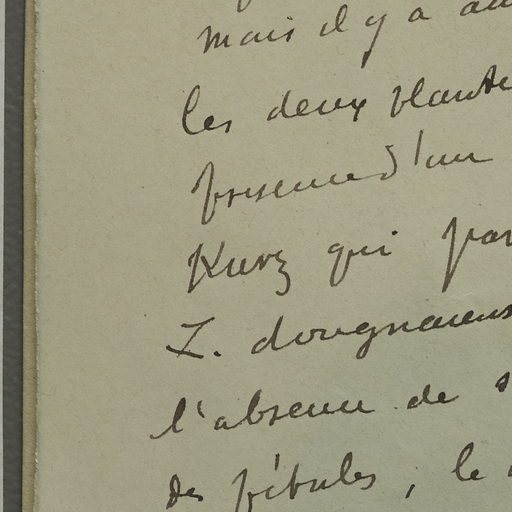 mais il y a au
les deux plante
presence d'un
Kurz qui par
I. dougnaiens
l'absence de s
des pétales, le